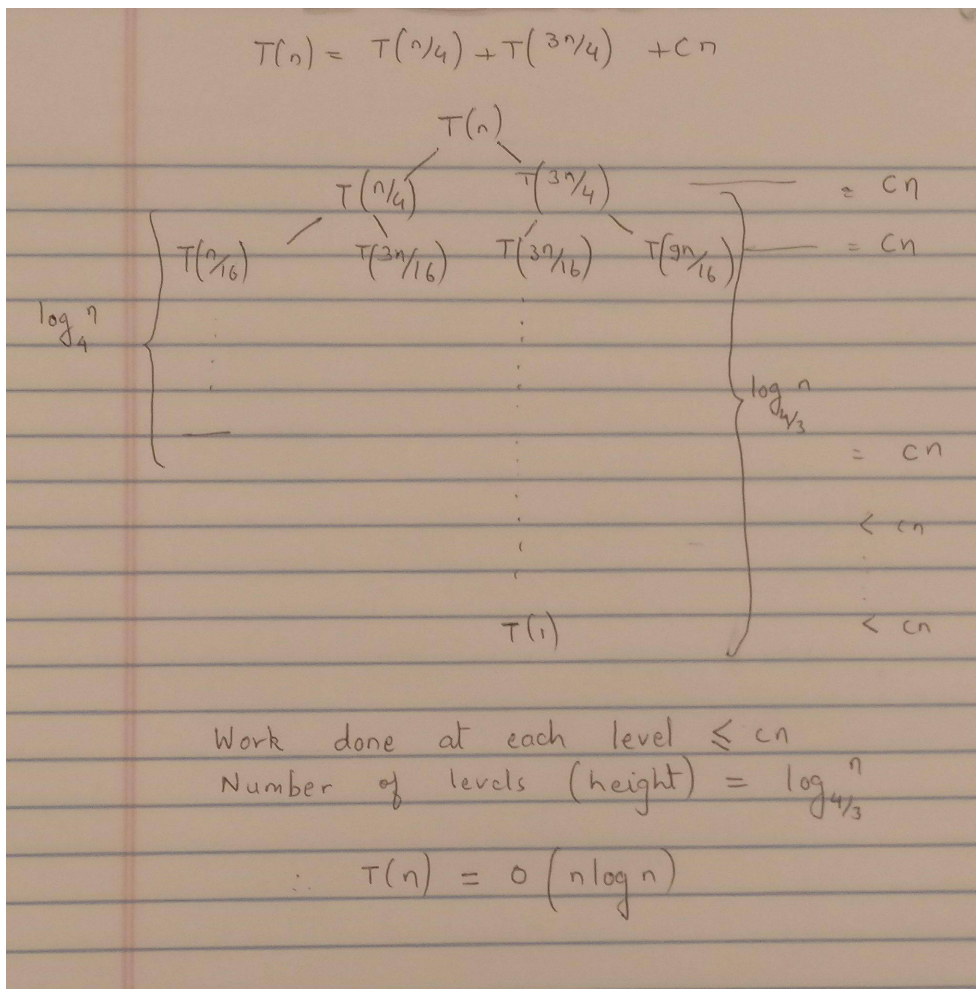 T(n) = T(n/4) + T(3n/4) + cn
T(n)
T(n/4) T(3n/4) = cn
T(n/16) T(3n/16) T(3n/16) T(9n/16) = cn
log₄ n
log₄/₃ n
= cn
< cn
T(1) < cn
Work done at each level ≤ cn
Number of levels (height) = log₄/₃ n
∴ T(n) = O(nlogn)